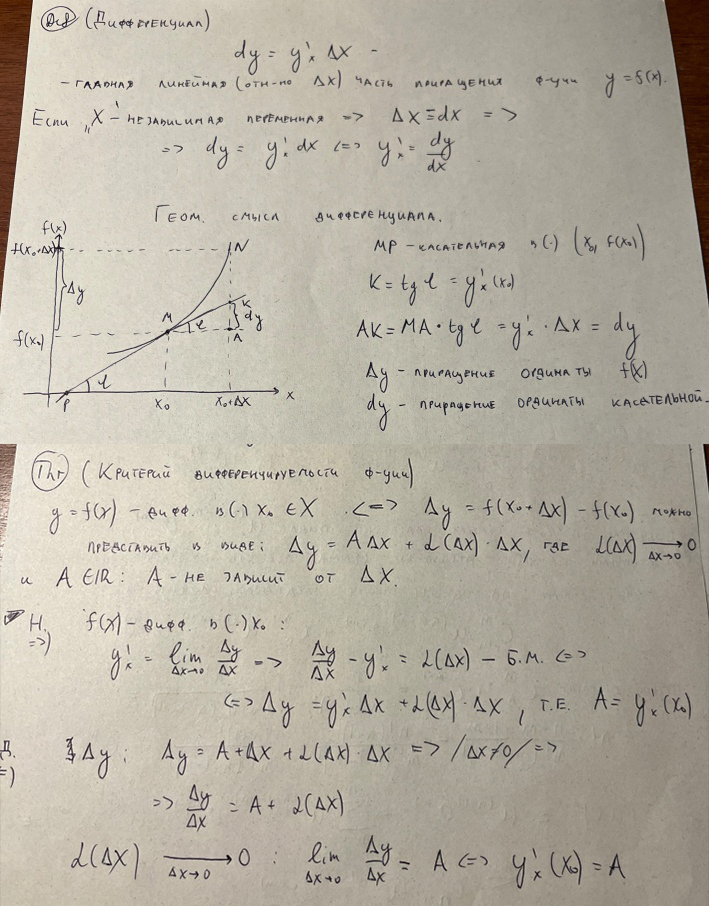 Def (Дифференциал)
dy = y'ₓ Δx –
– главная линейная (отн-но Δx) часть приращения ф-ции y = f(x).
Если „x" – независимая переменная => Δx ≡ dx =>
=> dy = y'ₓ dx <=> y'ₓ = dy/dx
Геом. смысл дифференциала.
f(x)
f(x₀+Δx)
N
Δy
M
K
dy
φ
A
f(x₀)
φ
P
x₀
x₀+Δx
x
MP – касательная в (·) (x₀, f(x₀))
K = tg φ = y'ₓ(x₀)
AK = MA · tg φ = y'ₓ · Δx = dy
Δy – приращение ординаты f(x)
dy – приращение ординаты касательной.
Thr (Критерий дифференцируемости ф-ции)
y = f(x) – дифф. в (·) x₀ ∈ X <=> Δy = f(x₀ + Δx) – f(x₀) можно
представить в виде: Δy = A Δx + α(Δx) · Δx, где α(Δx) ⟶ 0
Δx→0
и A ∈ ℝ: A – не зависит от Δx.
Н. f(x) – дифф. в (·) x₀ :
=>)
y'ₓ = lim Δx→0 Δy/Δx => Δy/Δx – y'ₓ = α(Δx) – б.м. <=>
<=> Δy = y'ₓ Δx + α(Δx) · Δx, т.е. A = y'ₓ(x₀)
Д. Δy : Δy = A + Δx + α(Δx) · Δx => /Δx≠0/ =>
=)
=> Δy/Δx = A + α(Δx)
α(Δx) ⟶ 0 : lim Δx→0 Δy/Δx = A <=> y'ₓ(x₀) = A
Δx→0